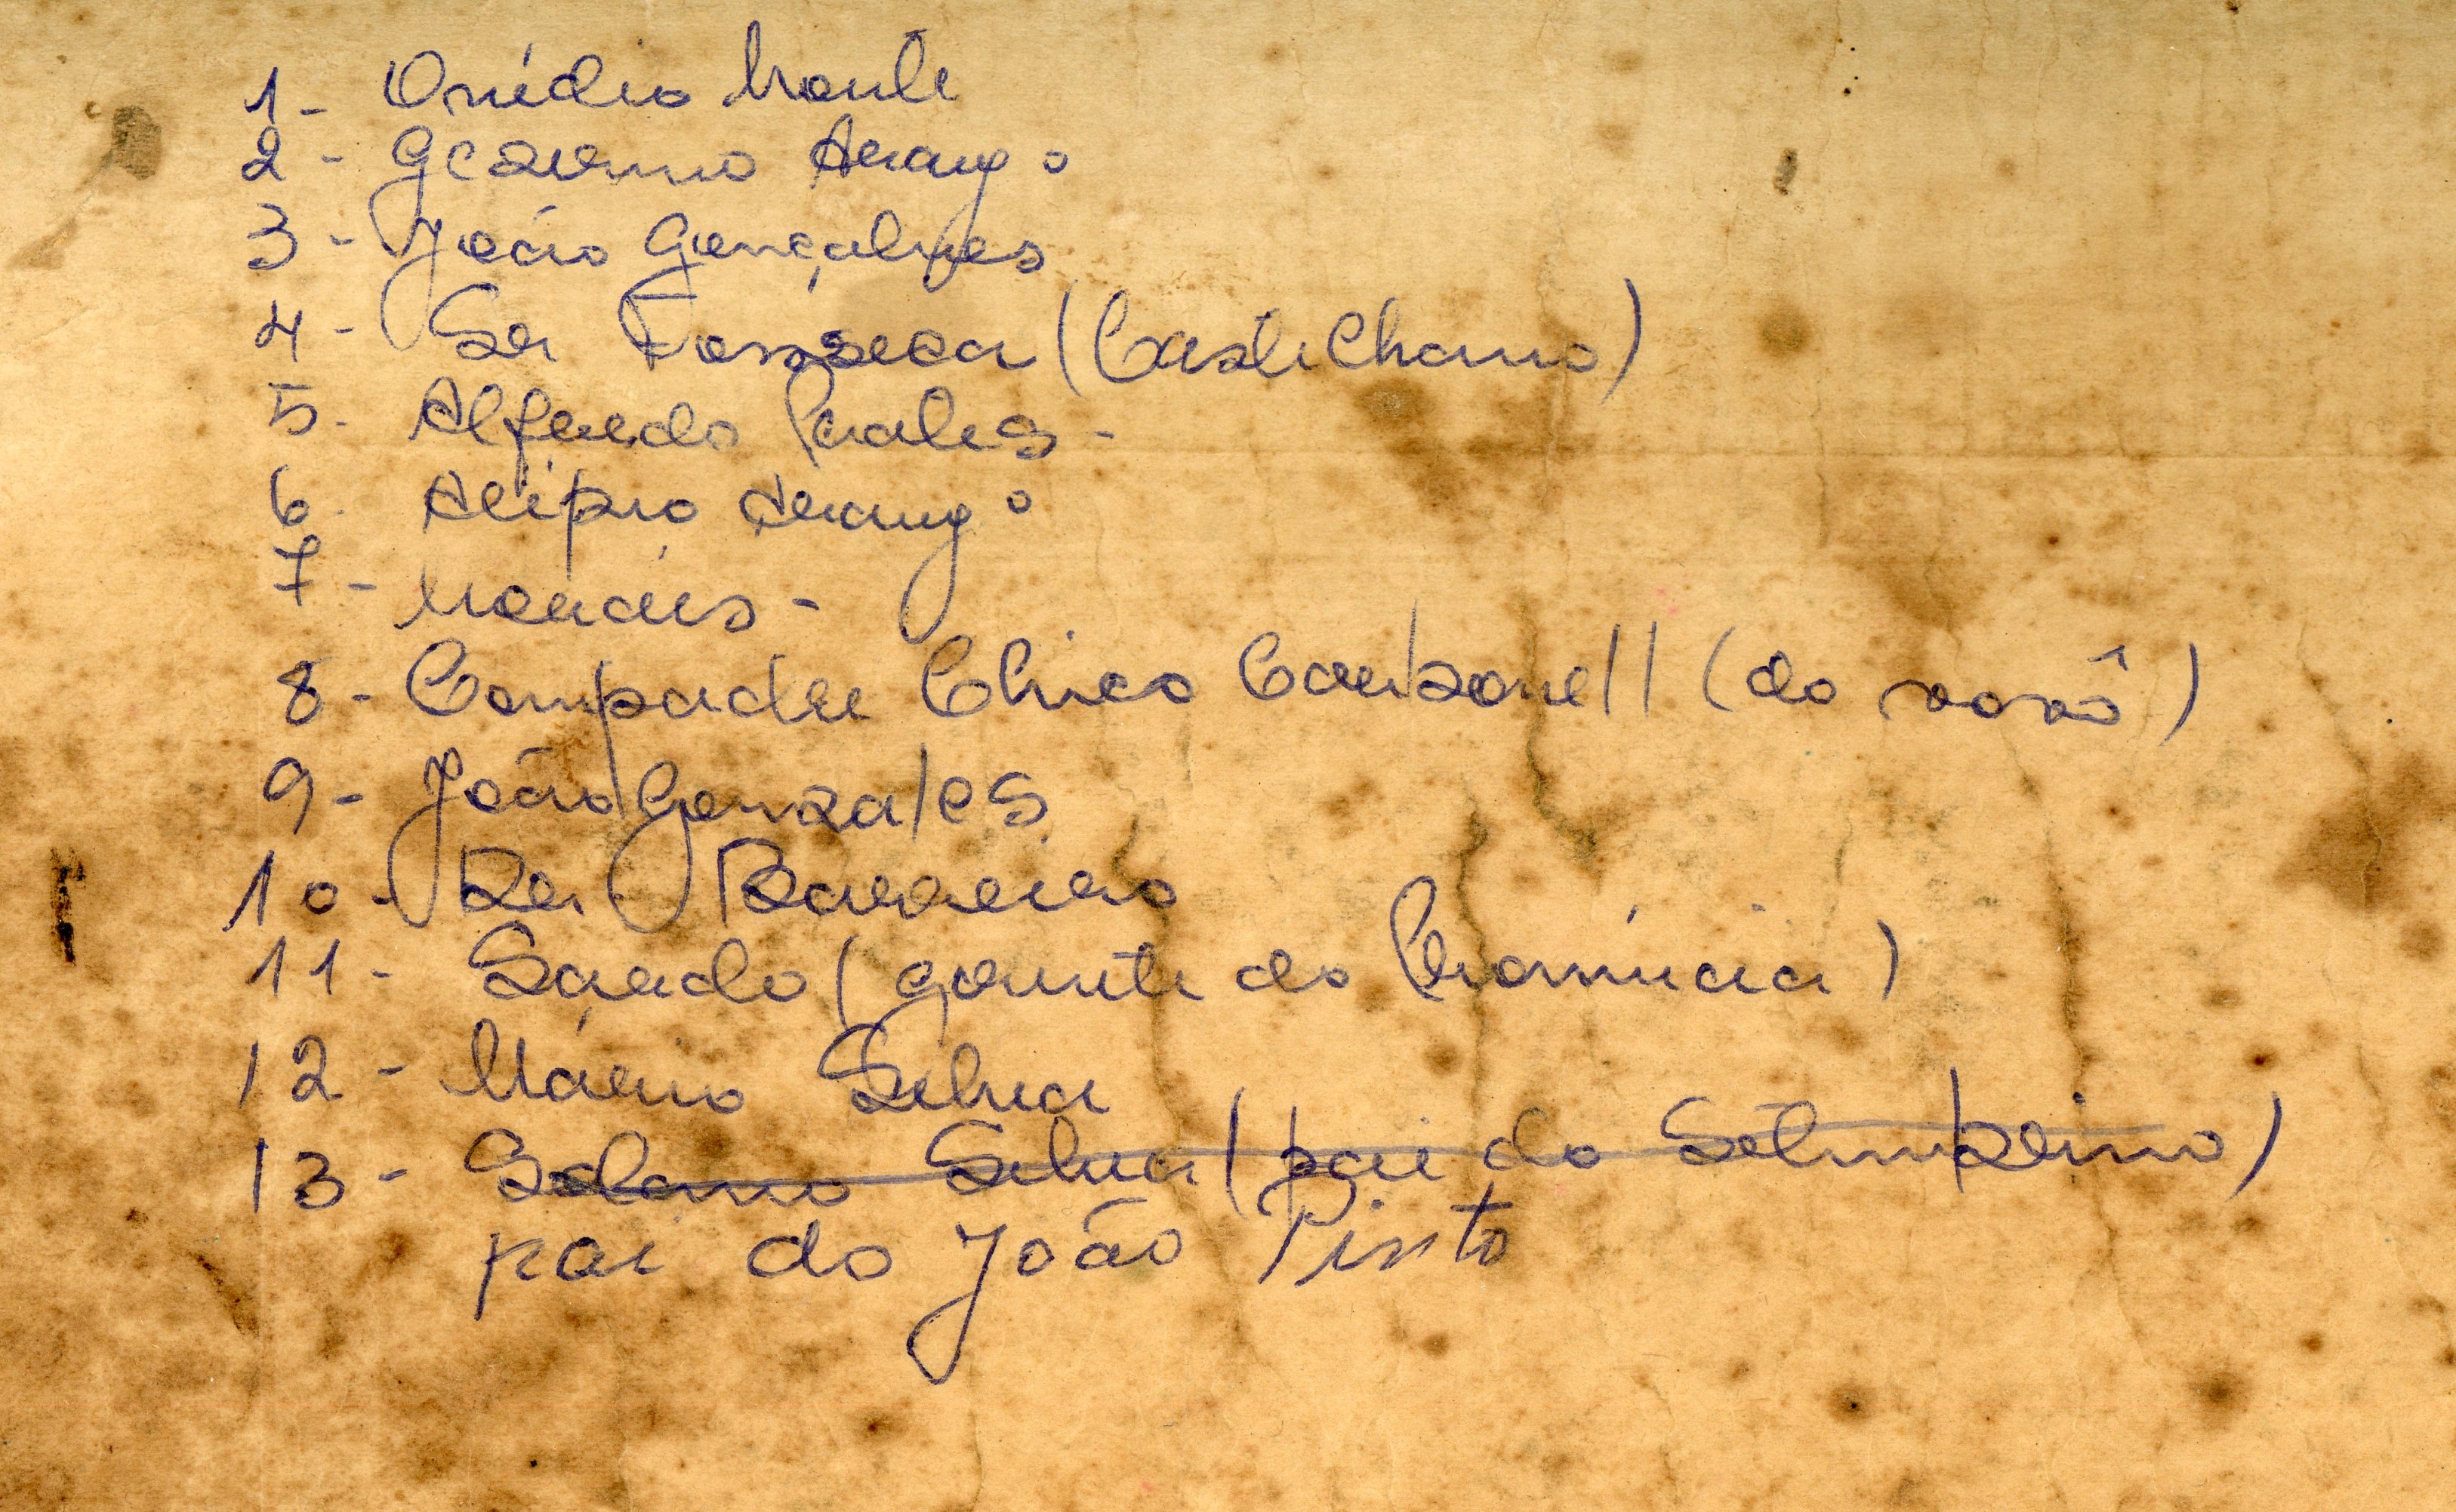 1- Ovídio Monte
2- Gervino Araujo
3- João Gonçalves
4- Sr Fonseca (Castelhano)
5- Alfredo Perales -
6- Alípio Araujo
7- Moraes -
8- Compadre Chico Carbonell (do vovô)
9- João Gonzales
10- Dr Barreiro
11- (gerente do Província)
12- Mário Silva
13- Silva (pai do Setembrino)
pai do João Pinto